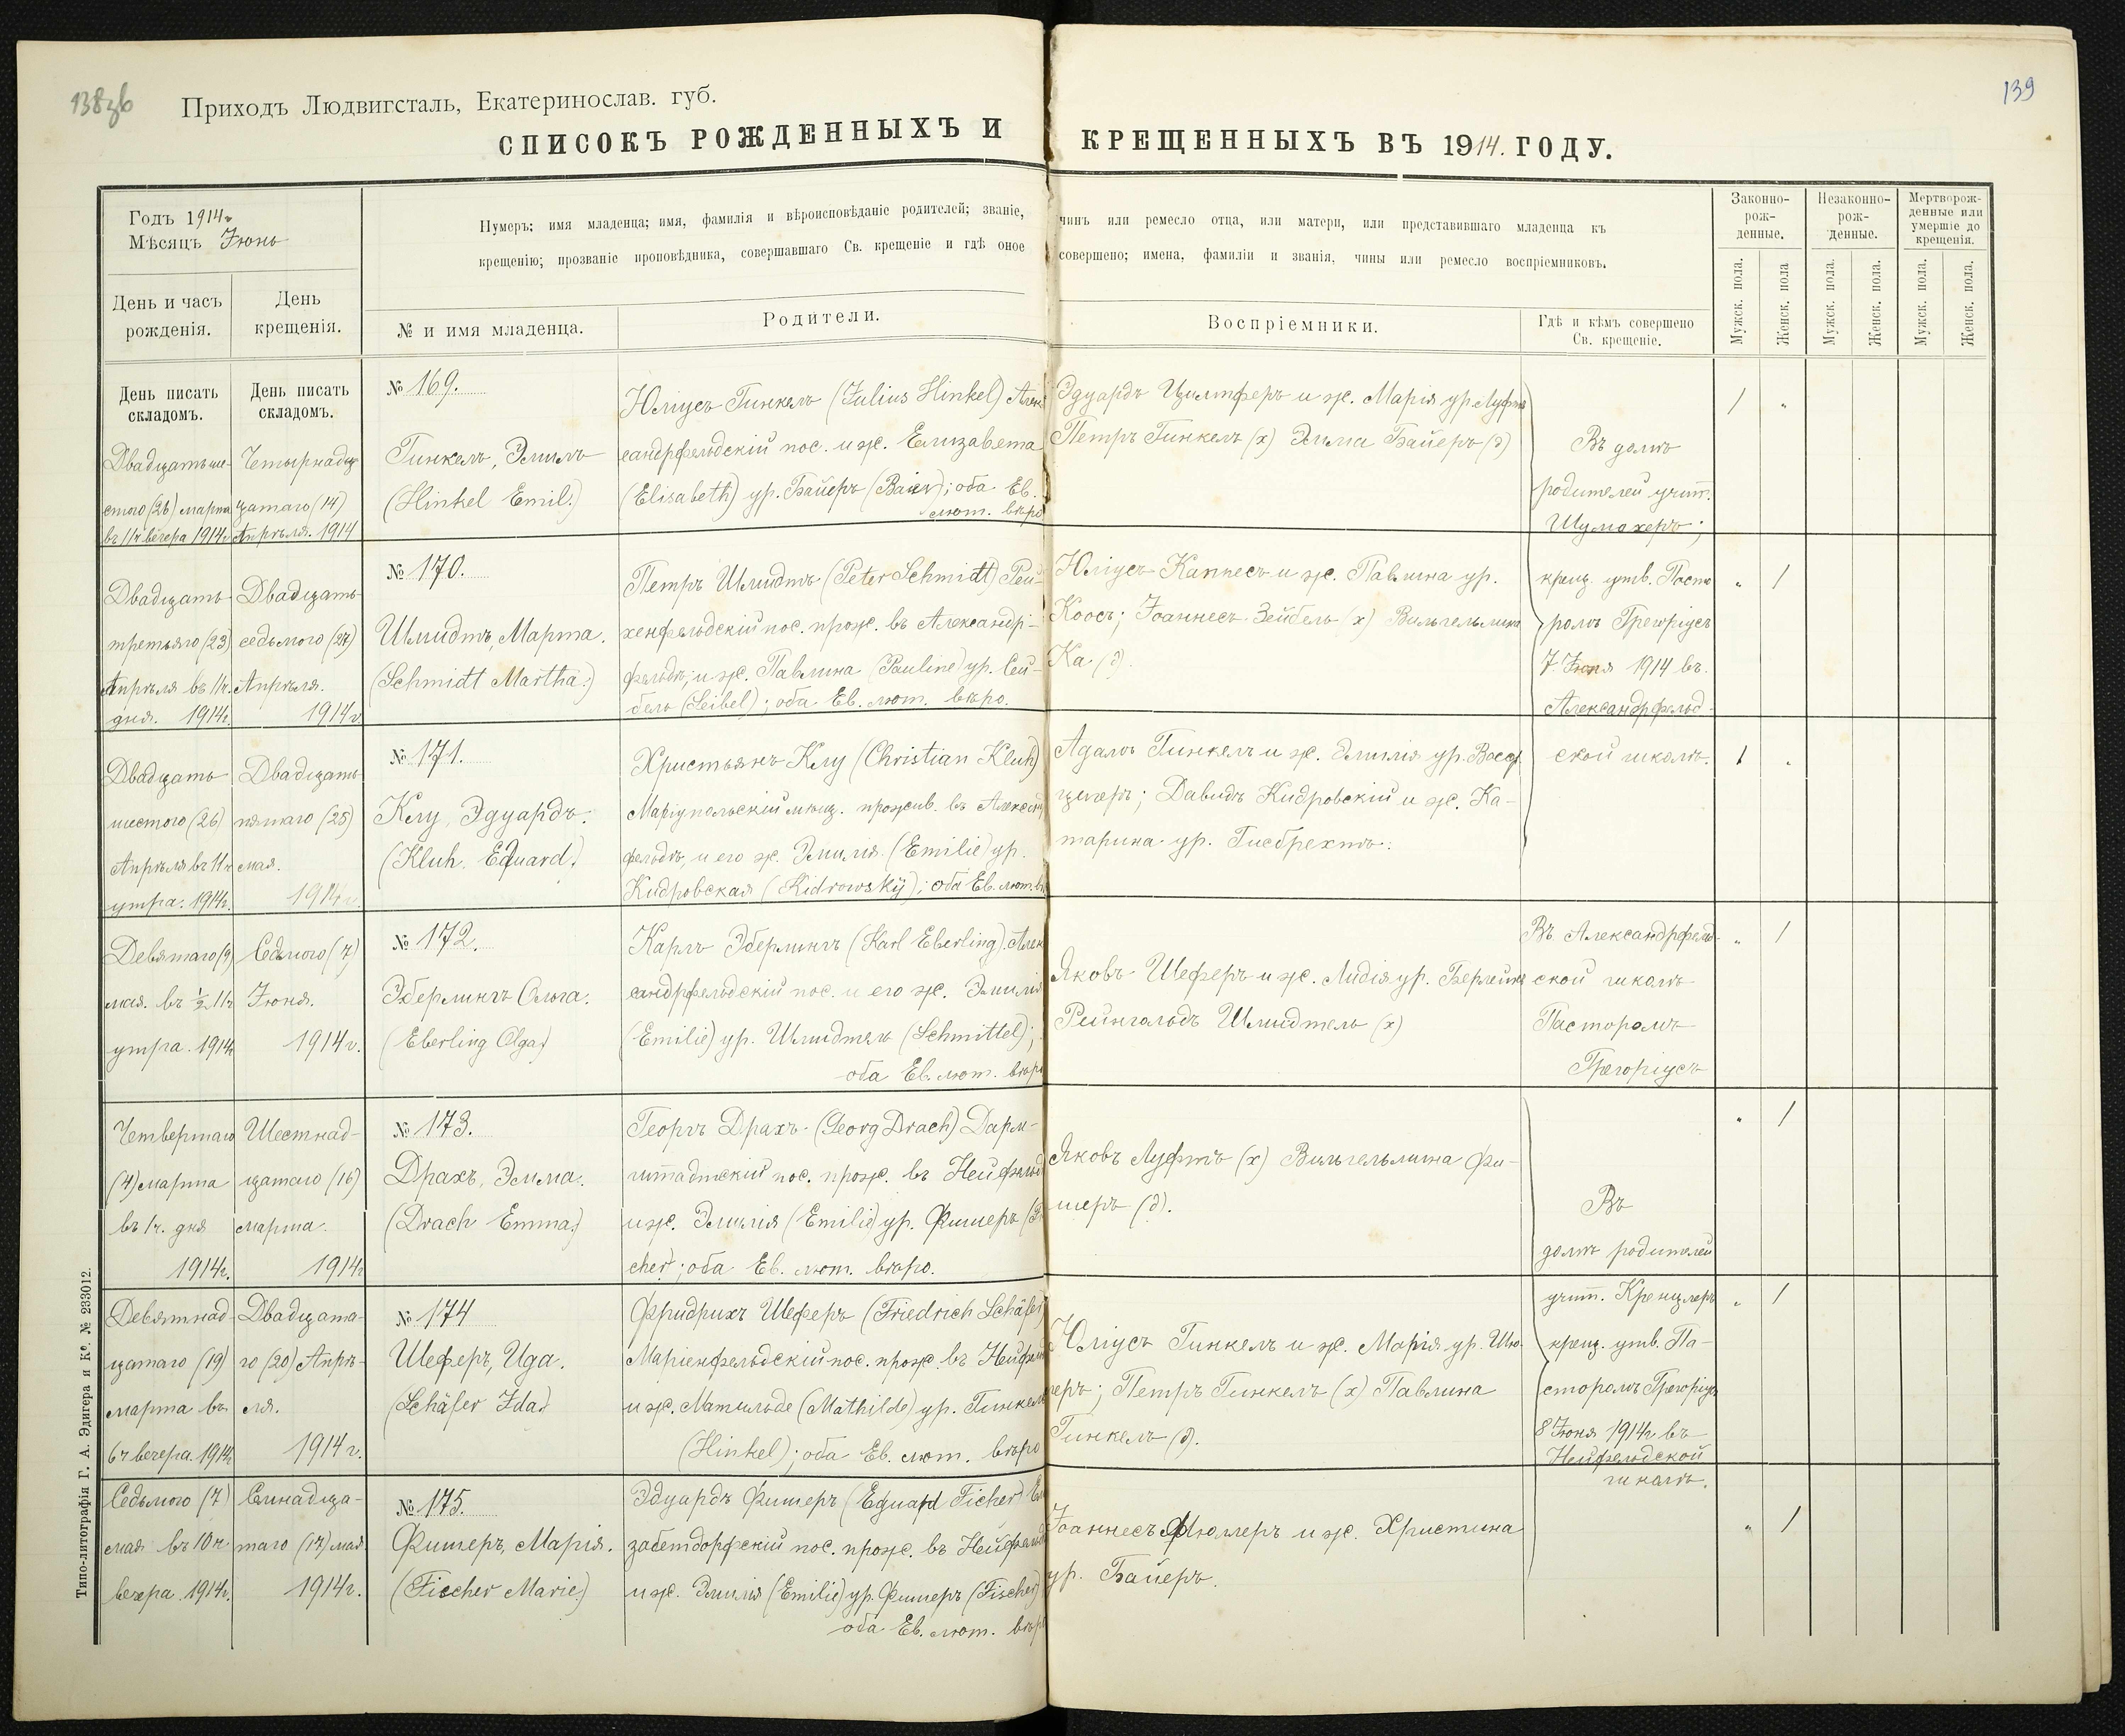 138зв
139
Приходъ Людвигсталь, Екатеринослав. губ.
СПИСОКЪ РОЖДЕННЫХЪ И КРЕЩЕННЫХЪ ВЪ 1914. ГОДУ.
Годъ 1914г
Мѣсяцъ Іюнь
Нумеръ; имя младенца; имя, фамилія и вѣроисповѣданіе родителей; званіе, чинъ или ремесло отца, или матери, или представившаго младенца къ
крещенію; прозваніе проповѣдника, совершавшаго Св. крещеніе и гдѣ оное совершено; имена, фамиліи и званія, чины или ремесло воспріемниковъ.
Законно-
рож-
денные.
Незаконно-
рож-
денные.
Мертворож-
денные или
умершіе до
крещенія.
День и часъ
рожденія.
День
крещенія.
№ и имя младенца.
Родители.
Воспріемники.
Гдѣ и кѣмъ совершено
Св. крещеніе.
Мужск. пола.
Женск. пола
Мужск. пола.
Женск. пола.
Мужск. пола.
Женск. пола.
День писать
складомъ.
День писать
складомъ.
Двадцатьше-
стого (26) марта
въ 11ч вечера 1914г
Четырнадц
цатаго (14)
Апрѣля. 1914
№ 169.
Гинкель, Эмиль
(Hinkel Emil.)
Юліусъ Гинкель (Julius Hinkel) Алек
сандрфельдскій пос. и ж. Елизавета
(Elisabeth) ур. Байеръ; оба Ев.
лют. вѣро
Эдуардъ и ж. Марія ур. Луфтъ
Петръ Гинкель (х) Эмма Байеръ (д)
Въ домѣ
родителей учит.
Шумахеръ;
/ "
Двадцать
третьяго (23)
Апрѣля въ 11ч.
дня. 1914г.
Двадцать
седьмого (27)
Апрѣля.
1914г
№ 170.
Шмидтъ, Марта.
(Schmidt Martha.)
Петръ Шмидтъ (Peter Schmidt) Рей-
хенфельдскій пос. прож. въ Александр-
фельдѣ; и ж. Павлина (Pauline) ур. Сей-
бель (Seibel); оба Ев. лют. вѣро.
Юліусъ Каппесъ и ж. Павлина ур.
Коосъ; Іоаннесъ Зейбель (х) Вильгельмина
Ка (д).
крещ. утв. Пасто
ромъ Грегоріусъ
7 Іюня 1914 въ.
Александрфельд-
" /
Двадцать
шестого (26)
Апрѣля въ 11ч
утра. 1914г.
Двадцать
пятаго (25)
мая.
1914г.
№ 171.
Клу, Эдуардъ.
(Kluh, Eduard.)
Христьянъ Клу (Christian Kluh)
Маріупольскій мѣщ. прожив. въ Александр
фельдѣ, и его ж. Эмилія (Emilie) ур.
Кидровская (Kidrowsky); оба Ев. лют. вѣ
Адамъ Гинкель и ж. Эмилія ур.
Давидъ Кидровскій и ж. Ка-
тарина ур. Гисбрехтъ.
ской школѣ.
1 "
Девятаго (9)
мая. въ ½ 11ч
утра. 1914г
Седьмого (7)
Іюня.
1914г.
№ 172.
Эберлингъ Ольга.
(Eberling Olga)
Карлъ Эберлингъ (Karl Eberling). Алек
сандрфельдскій пос. и его ж. Эмилія
(Emilie) ур. Шмидтель (Schmittel);
оба Ев. лют. вѣро
Яковъ Шеферъ и ж. Лидія ур.
Рейнгольдъ Шмидтель (х)
Въ Александрфельд-
ской школѣ
Пасторомъ
Грегоріусъ
" /
Четвертаго
(4) марта
въ 1ч. дня
1914г.
Шестнад-
цатаго (16)
марта.
1914г
№ 173.
Драхъ, Эмма.
(Drach Emma.)
Георгъ Драхъ (Georg Drach) Дарм-
штадтскій пос. прож. въ Нейфельд
и ж. Эмилія (Emilie) ур. Фишеръ (Fi
cher); оба Ев. лют. вѣро.
Яковъ Луфтъ (х) Вильгельмина Фи-
шеръ (д).
Въ
домѣ родителей
" /
Девятнад-
цатаго (19)
марта въ
6ч вечера. 1914г
Двадцата-
го (20) Апрѣ-
ля.
1914г.
№ 174
Шеферъ, Ида.
(Schäfer Ida.)
Фридрихъ Шеферъ (Friedrich Schäfer)
Маріенфельдскій пос. прож. въ Нейфельд
и ж. Матильде (Mathilde) ур. Гинкель
(Hinkel); оба Ев. лют. вѣро
Юліусъ Гинкель и ж. Марія ур. Шю-
леръ; Петръ Гинкель (х) Павлина
Гинкель (д).
учит. Кренцлеръ
крещ. утв. Па-
сторомъ Грегоріусъ
8 Іюня 1914г въ
Нейфельдской
школѣ.
" /
Седьмого (7)
мая въ 10ч.
вечера. 1914г.
Семнадца-
таго (17) мая
1914г.
№ 175.
Фишеръ, Марія.
(Fischer Marie.)
Эдуардъ Фишеръ (Eduard Ficher) Ели
забетдорфскій пос. прож. въ Нейфельд
и ж. Эмилія (Emilie) ур. Фишеръ (Fischer)
оба Ев. лют. вѣро
Іоаннесъ Мюллеръ и ж. Христина
ур. Байеръ.
" /
Типо-литографія Г. А. Эдигера и Ко. № 233012.